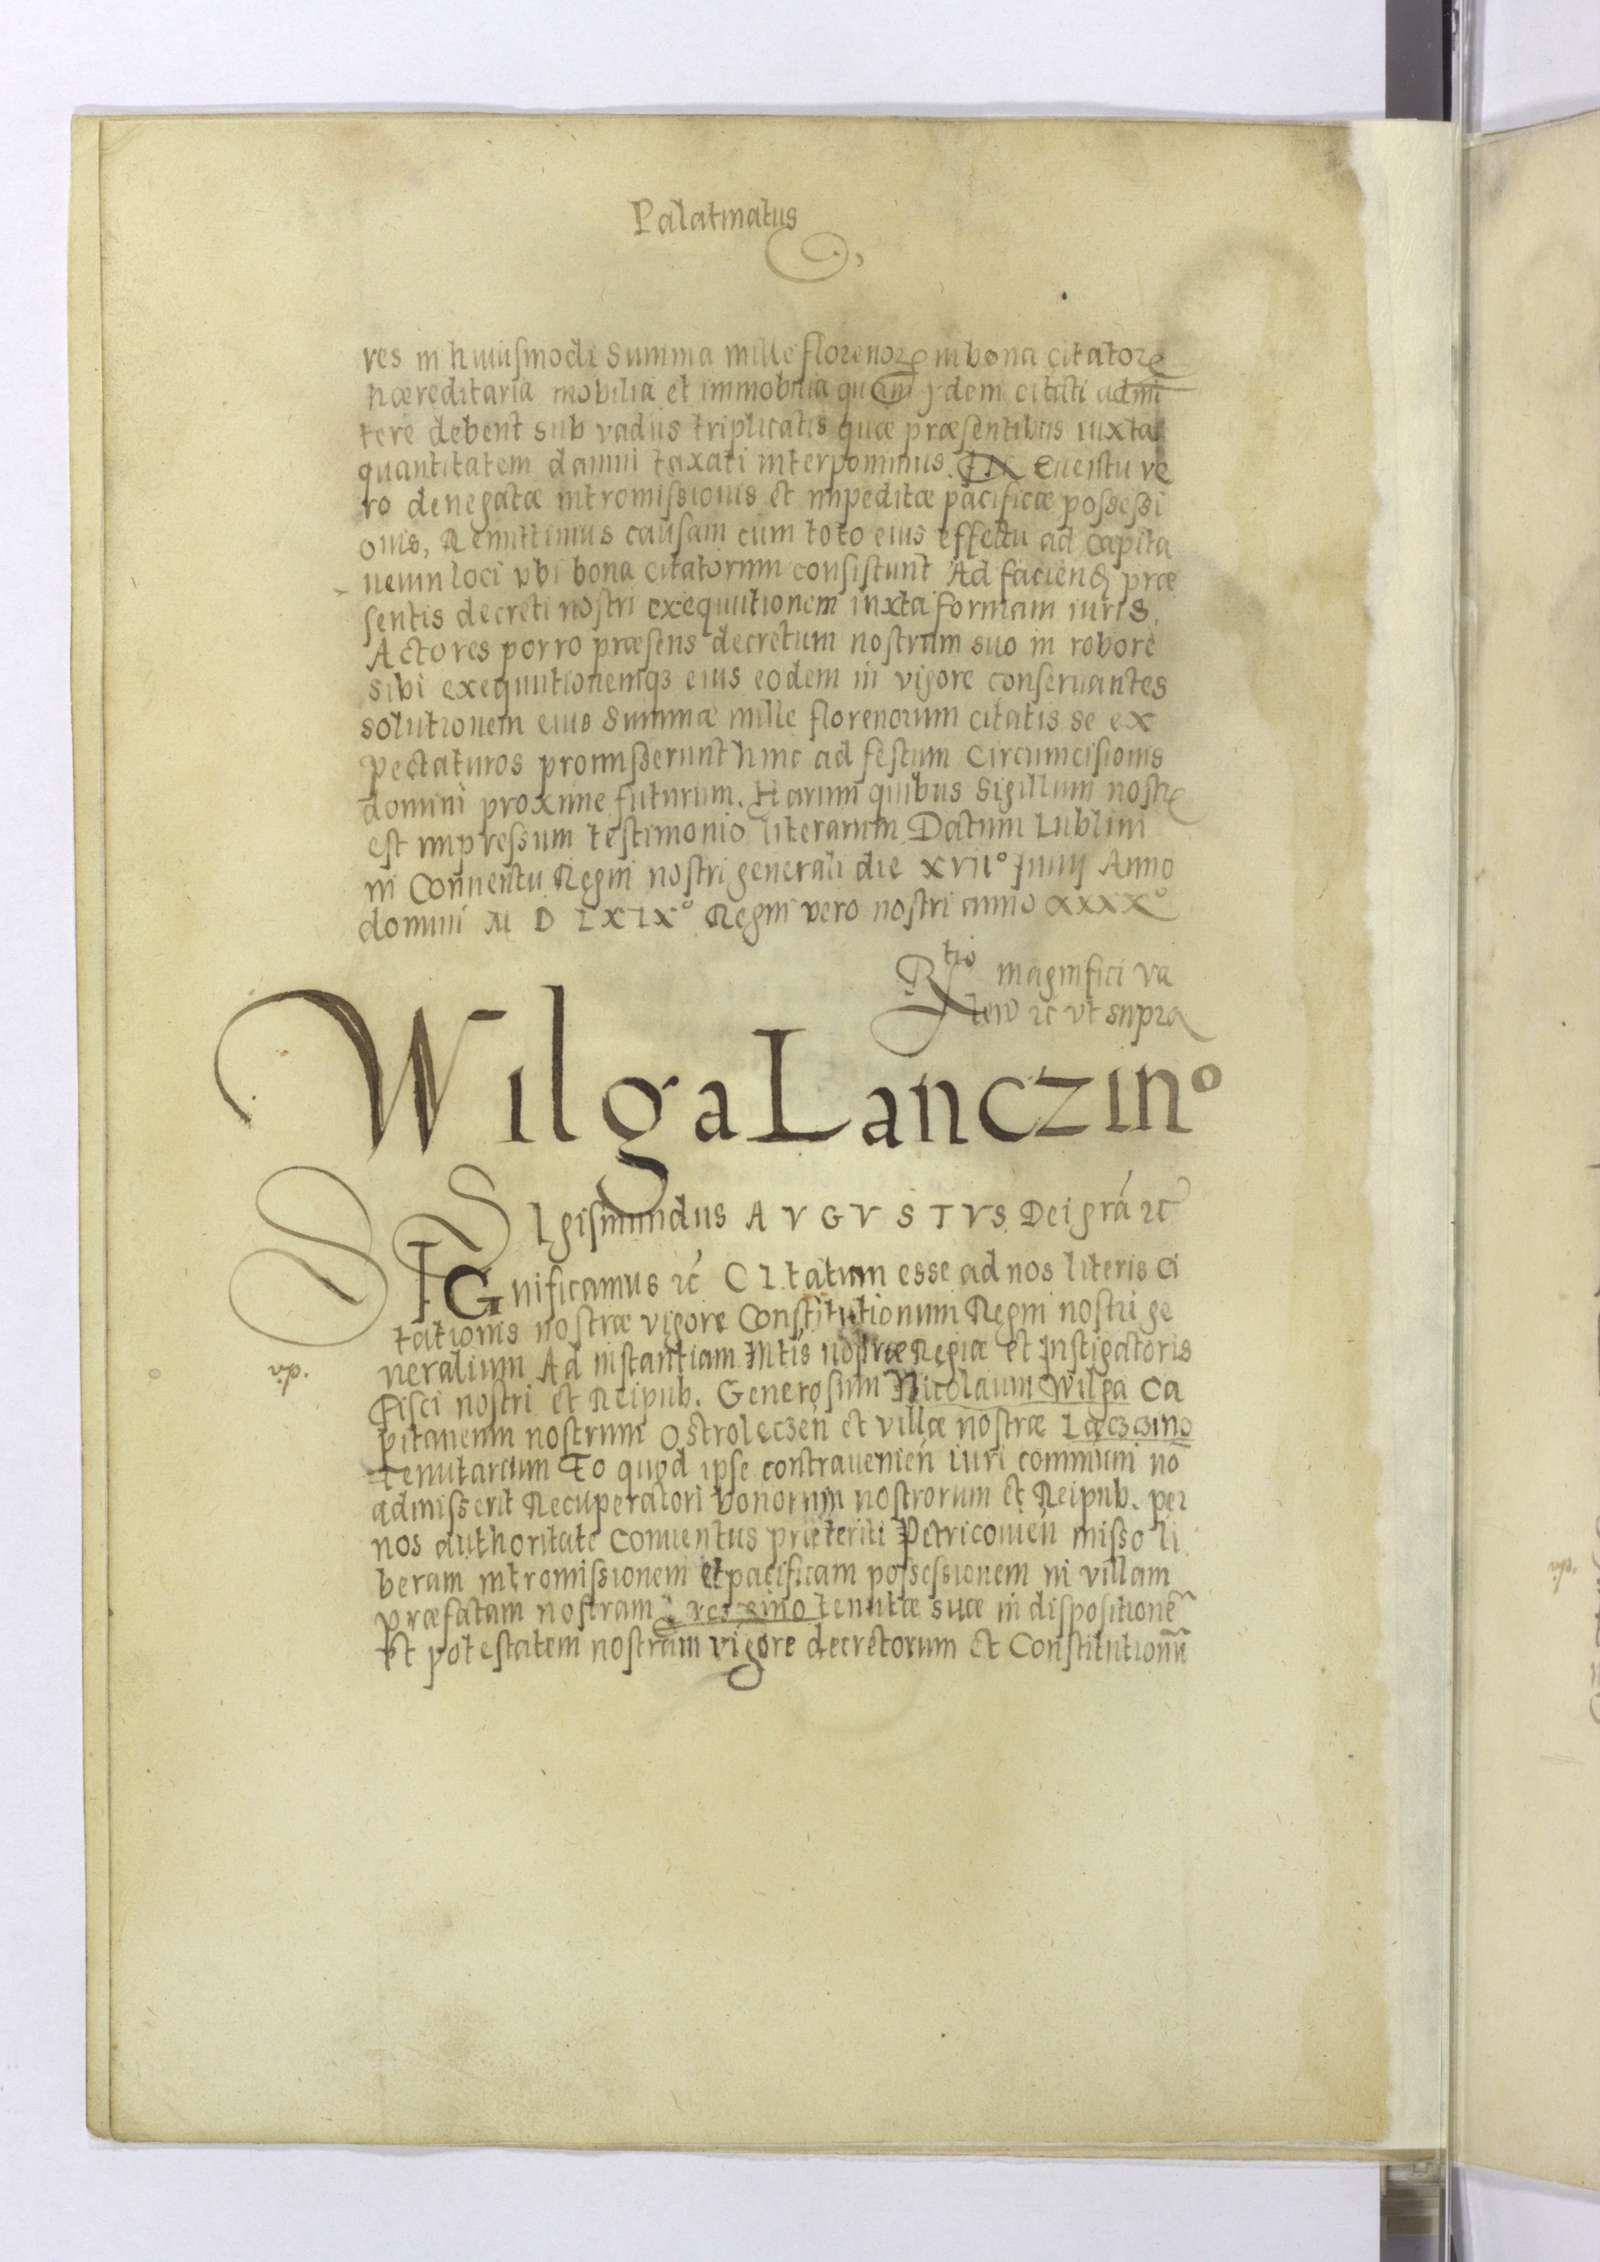 Palatinatus
res in huiusmodi summa mille florenorꝝ in bona citatorꝝ
hæreditaria mobilia et immobilia quam ijdem citati admi
tere debent sub vadiis triplicatis quæ præsentibus iuxta
quantitatem damni taxati interponimus. IN euentu ve
ro denegatæ intromissionis et impeditæ pacificæ possessi
onis, Remittimus causam cum toto eius effectu ad capita
neum loci vbi bona citatorum consistunt Ad faciend præ
sentis decreti nostri exequutionem iuxta formam iuris.
Actores porro præsens decretum nostrum suo in robore
sibi exequutionemqꝫ eius eodem in vigore conseruantes
solutionem eius summæ mille florenorum citatis se ex
pectaturos promisserunt hinc ad festum Circumcisionis
domini proxime futurum. Harum quibus Sigillum nostrꝝ
est impressum testimonio literarum Datum Lublini
in Conuentu Regni nostri generali die XVIIº Junij Anno
domini M D LXIXº Regni vero nostri anno XXXXº
Rtio magnifici Va
len ꝛc vt supra
Wilga Lanczinº
SIgismundus AVGVSTVS Dei grã ꝛc
SIGnificamus ꝛc CItatum esse ad nos literis Ci
tationis nostræ vigore Constitutionum Regni nostri ge
neralium Ad instantiam Mtis nostræ Regiæ et Instigatoris
Fisci nostri et Reipub. Generosum Nicolaum Wilga Ca
pitaneum nostrum Ostroleczeń et villæ nostræ Læczzino
Tenutarium Eo quod ipse contrauenień iuri communi nõ
admisserit Recuperatori bonorum nostrorum et Reipub. per
nos authoritate Conuentus præteriti Petricouień misso li
beram intromissionem et pacificam possessionem in villam
præfatam nostram tenutæ suæ in dispositionẽ
Et potestatem nostram vigore decretorum et Constitutionũ